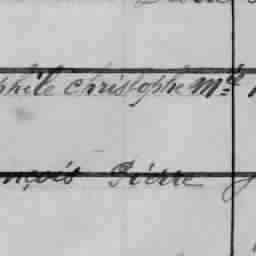 phile Christophe Md
nçois Pierre